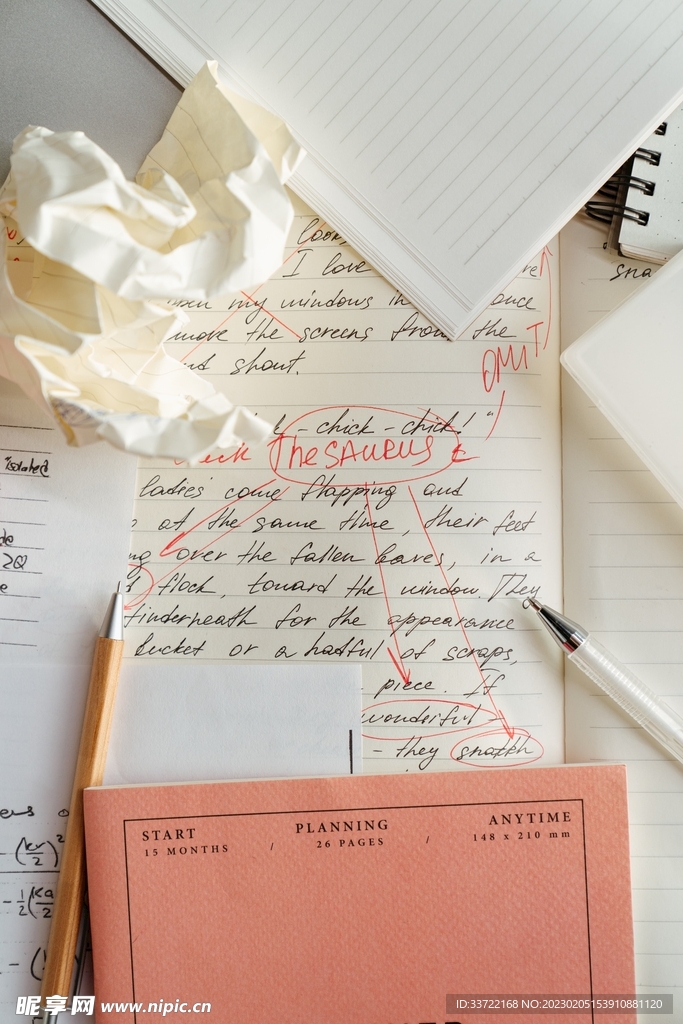 look
I love
my windows in once
move the screens from the
and shout.
OMIT
- chick - chick!"
Thesaurus
ladies' come flapping and
at the same time, their feet
over the fallen leaves, in a
flock, toward the window. They
underneath for the appearance
bucket or a hatful of scraps,
piece. If
wonderful -
- they snatch
sna
isolated
2Q
START
15 MONTHS
/
PLANNING
26 PAGES
/
ANYTIME
148 x 210 mm
昵享网 www.nipic.cn
ID:33722168 NO:20230205153910881120